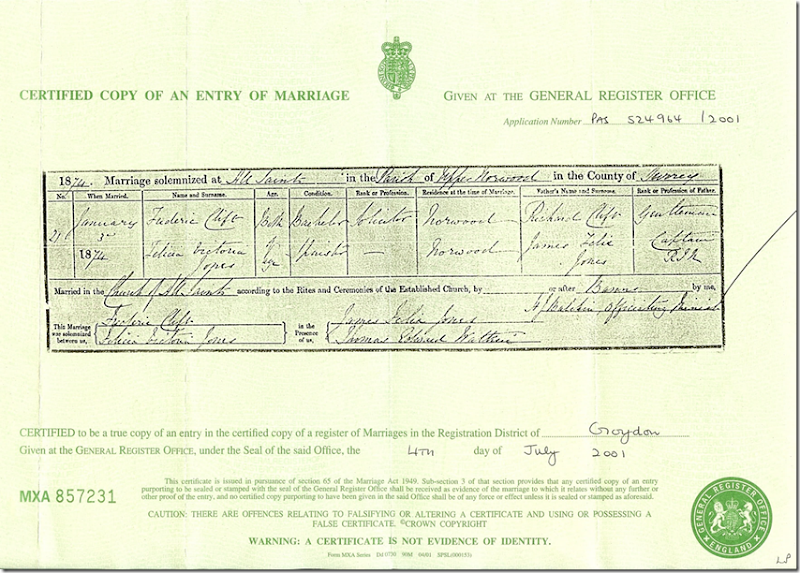 CERTIFIED COPY OF AN ENTRY OF MARRIAGE
GIVEN AT THE GENERAL REGISTER OFFICE
Application Number PAS 524964 / 2001
1874. Marriage solemnized at All Saints in the Parish of Upper Norwood in the County of Surrey
No. When Married. Name and Surname. Age. Condition. Rank or Profession. Residence at the time of Marriage. Father's Name and Surname. Rank or Profession of Father.
January Frederic Clift Both Bachelor Solicitor Norwood Richard Clift Gentleman
1874 Felicia Victoria Jones Age Spinster — Norwood James Felix Jones Captain
Married in the Church of All Saints according to the Rites and Ceremonies of the Established Church, by or after Banns by me,
Officiating Minister
This Marriage was solemnized between us, Frederic Clift
Felicia Victoria Jones
in the Presence of us, James Felix Jones
Thomas Edward
CERTIFIED to be a true copy of an entry in the certified copy of a register of Marriages in the Registration District of Croydon
Given at the GENERAL REGISTER OFFICE, under the Seal of the said Office, the 4TH day of July 2001
MXA 857231
This certificate is issued in pursuance of section 65 of the Marriage Act 1949. Sub-section 3 of that section provides that any certified copy of an entry
purporting to be sealed or stamped with the seal of the General Register Office shall be received as evidence of the marriage to which it relates without any further or
other proof of the entry, and no certified copy purporting to have been given in the said Office shall be of any force or effect unless it is sealed or stamped as aforesaid.
CAUTION: THERE ARE OFFENCES RELATING TO FALSIFYING OR ALTERING A CERTIFICATE AND USING OR POSSESSING A
FALSE CERTIFICATE. ©CROWN COPYRIGHT
WARNING: A CERTIFICATE IS NOT EVIDENCE OF IDENTITY.
Form MXA Series
GENERAL REGISTER OFFICE
ENGLAND